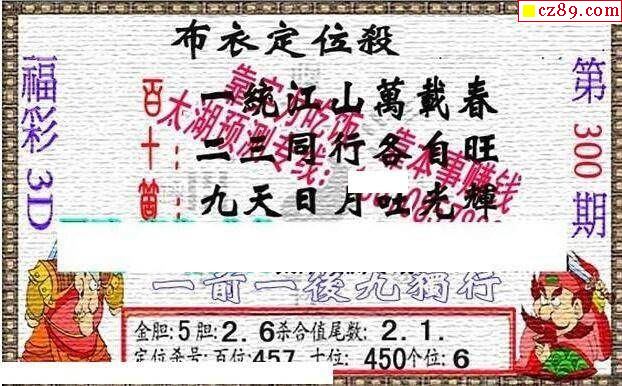 cz89.com
布衣定位殺
福彩3D
第300期
百:一統江山萬載春
十:二三同行各自旺
個:九天日月吐光輝
太湖预测专线:
靠本事赚钱
一前一後九獨行
金胆:5胆:2.6杀合值尾数:2.1.
定位杀号:百位457 十位:450个位:6